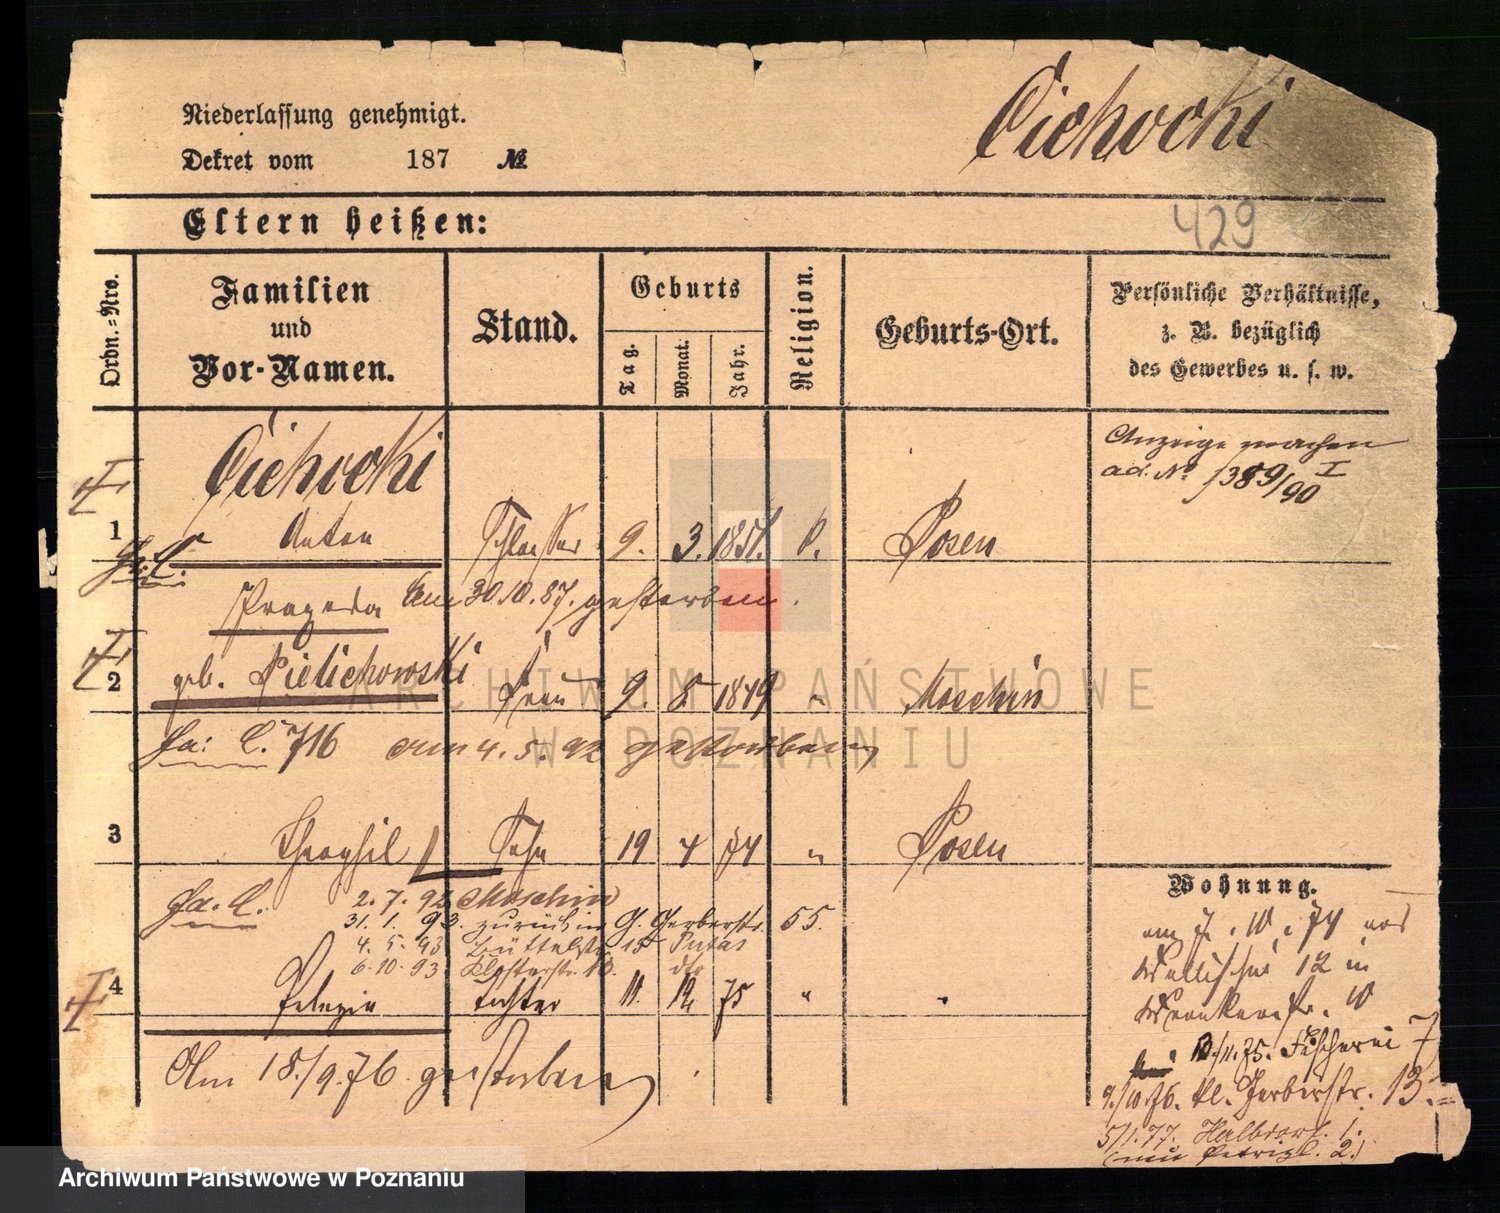 Niederlassung genehmigt.
Dekret vom 187 №
Cichocki
Eltern heißen:
429
Ordn.=Nro.
Familien und Vor-Namen.
Stand.
Geburts
Tag. Monat. Jahr.
Religion.
Geburts-Ort.
Persönliche Verhältnisse, z. B. bezüglich des Gewerbes u. s. w.
Cichocki
Anzeige machen
ad. № 1389/90 I
1 Anton Schlosser 9. 3. 1851. Posen
am 30.10.87. gestorben.
2 geb. Pielichowski Frau 9. 5 1849 " Moschin
Fa: C. 716 am 4. 5. 92 gestorben
3 Theophil Sohn 19 4 74 " Posen
Fa. C. 2. 7. 92 Moschin
31. 1. 93. zurück in G. Gerberstr. 55.
4. 5. 93 Büttelstr 15
6. 10. 93. Klosterstr.
4 Pelagia Tochter 11. 75 " "
Am 18./9.76. gestorben
Wohnung.
am 7. 10. 74
12 in
10
10./11. 75. Fischerei 7
9./10. 76. kl. Gerberstr. 13.
5/1. 77. Halbdorf. 1.
ARCHIWUM PAŃSTWOWE
W POZNANIU
Archiwum Państwowe w Poznaniu